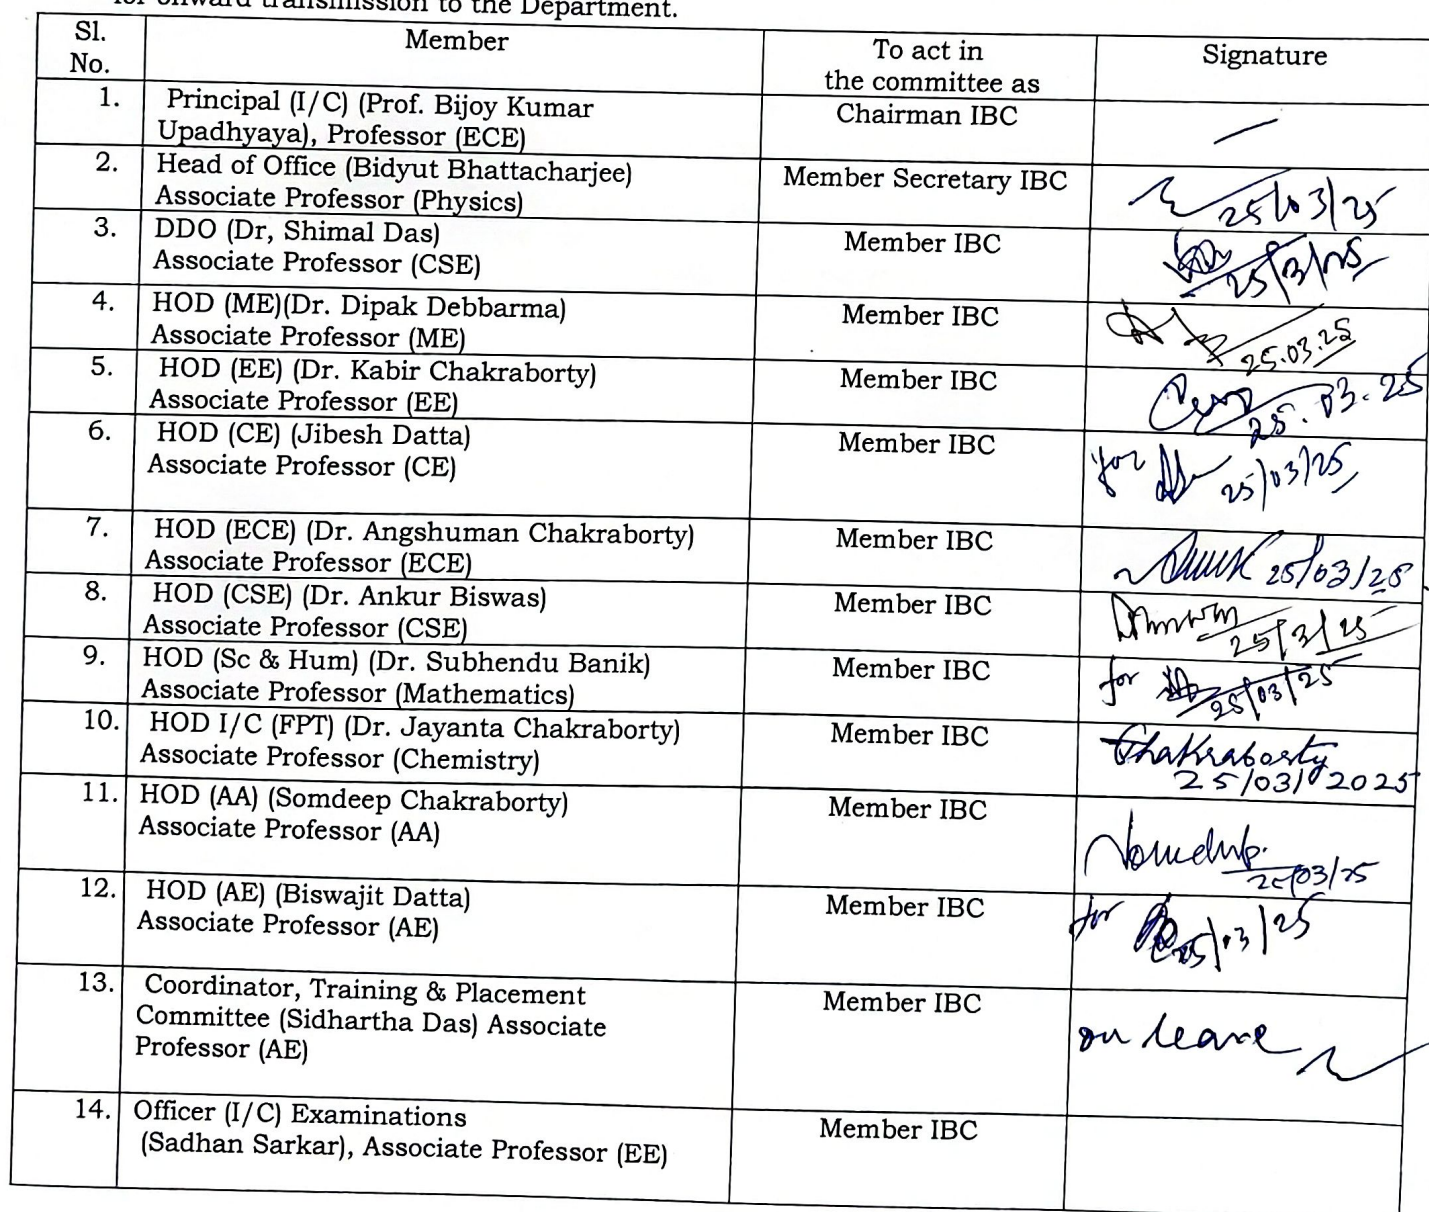 for onward transmission to the Department.
Sl.
No.
Member
To act in
the committee as
Signature
1.
Principal (I/C) (Prof. Bijoy Kumar
Upadhyaya), Professor (ECE)
Chairman IBC
2.
Head of Office (Bidyut Bhattacharjee)
Associate Professor (Physics)
Member Secretary IBC
25/03/25
3.
DDO (Dr, Shimal Das)
Associate Professor (CSE)
Member IBC
25/3/25
4.
HOD (ME)(Dr. Dipak Debbarma)
Associate Professor (ME)
Member IBC
25.03.25
5.
HOD (EE) (Dr. Kabir Chakraborty)
Associate Professor (EE)
Member IBC
25.03.25
6.
HOD (CE) (Jibesh Datta)
Associate Professor (CE)
Member IBC
for
25/03/25
7.
HOD (ECE) (Dr. Angshuman Chakraborty)
Associate Professor (ECE)
Member IBC
25/03/25
8.
HOD (CSE) (Dr. Ankur Biswas)
Associate Professor (CSE)
Member IBC
25/3/25
9.
HOD (Sc & Hum) (Dr. Subhendu Banik)
Associate Professor (Mathematics)
Member IBC
for
25/03/25
10.
HOD I/C (FPT) (Dr. Jayanta Chakraborty)
Associate Professor (Chemistry)
Member IBC
Chakraborty
25/03/2025
11.
HOD (AA) (Somdeep Chakraborty)
Associate Professor (AA)
Member IBC
25/03/25
12.
HOD (AE) (Biswajit Datta)
Associate Professor (AE)
Member IBC
for
25/03/25
13.
Coordinator, Training & Placement
Committee (Sidhartha Das) Associate
Professor (AE)
Member IBC
on leave
14.
Officer (I/C) Examinations
(Sadhan Sarkar), Associate Professor (EE)
Member IBC